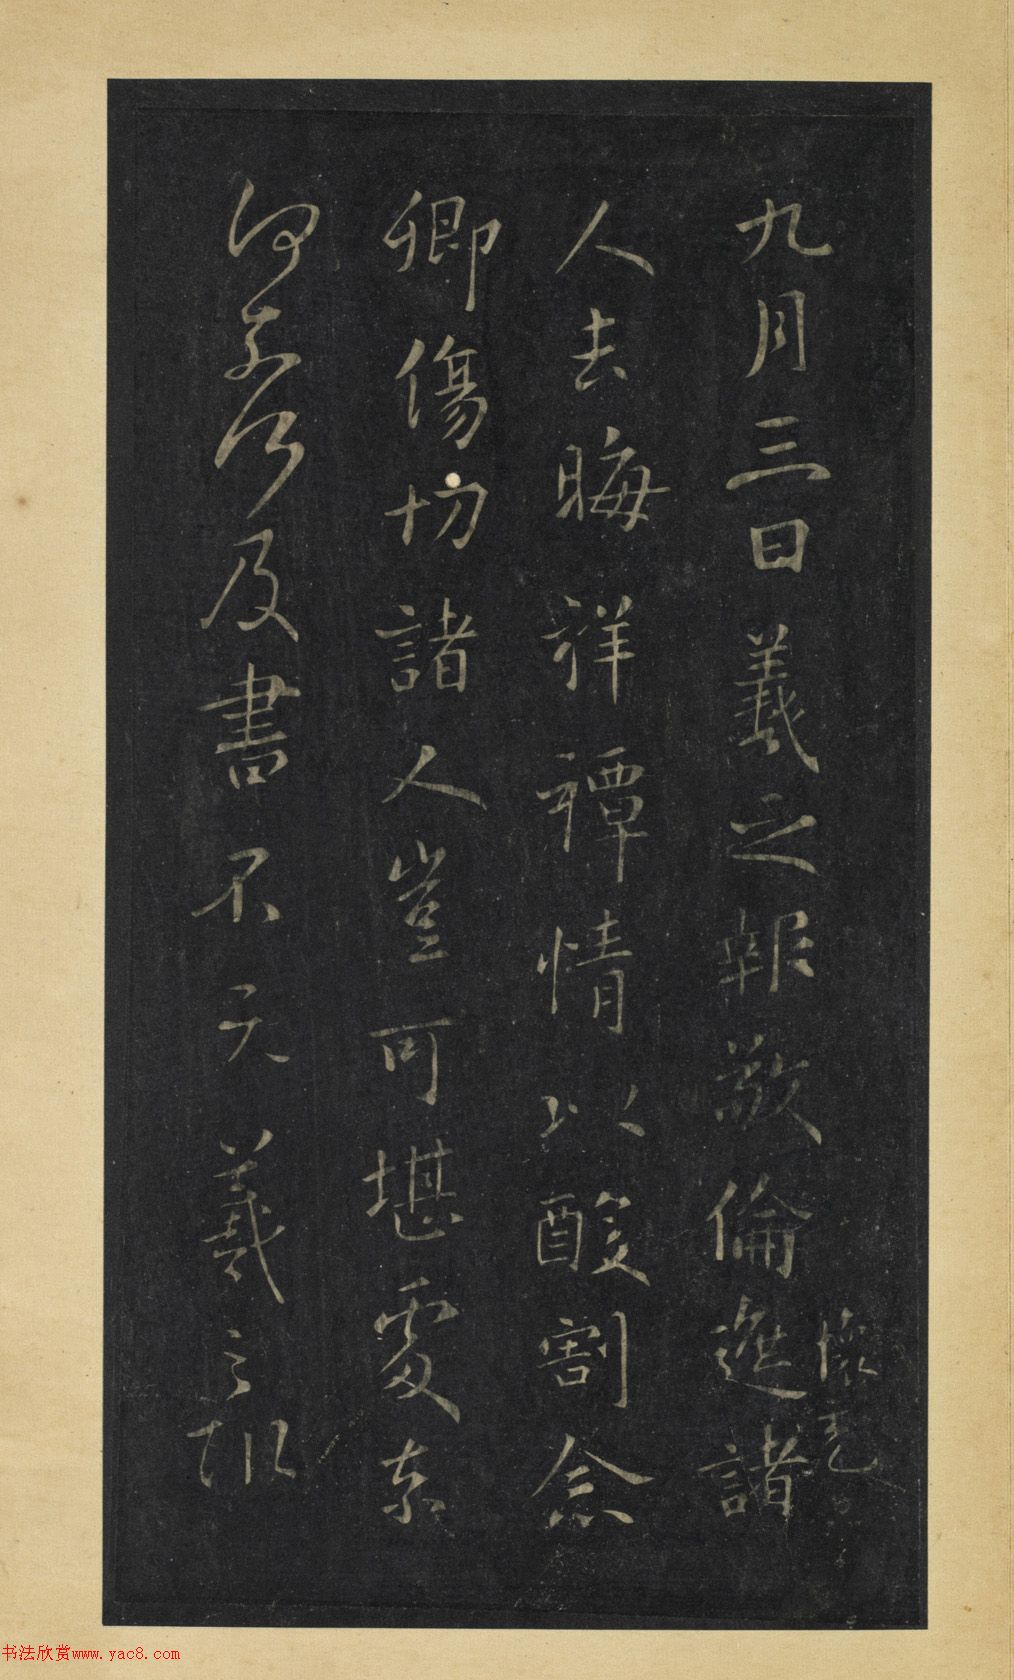 九月三日羲之報敬倫遮諸
人去晦祥禫情以酸割念
卿傷切諸人豈可堪處奈
何奈何及書不次羲之報
懷充
书法欣赏www.yac8.com